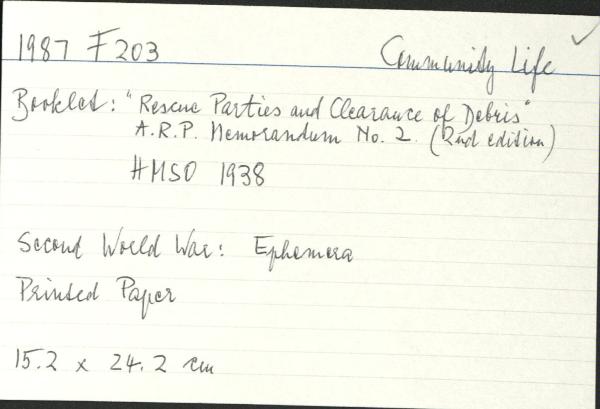 1987 F203 Community Life ✓
Booklet: "Rescue Parties and Clearance of Debris"
A.R.P. Memorandum No. 2. (2nd edition)
HMSO 1938
Second World War: Ephemera
Printed Paper
15.2 x 24.2 cm